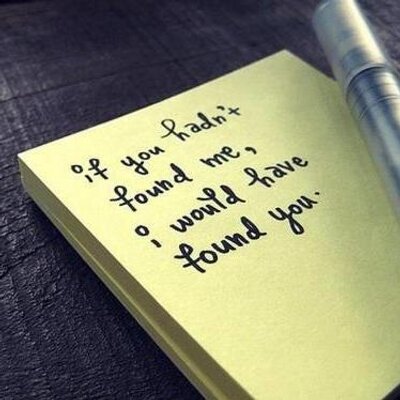 if you hadn't
found me,
i would have
found you.